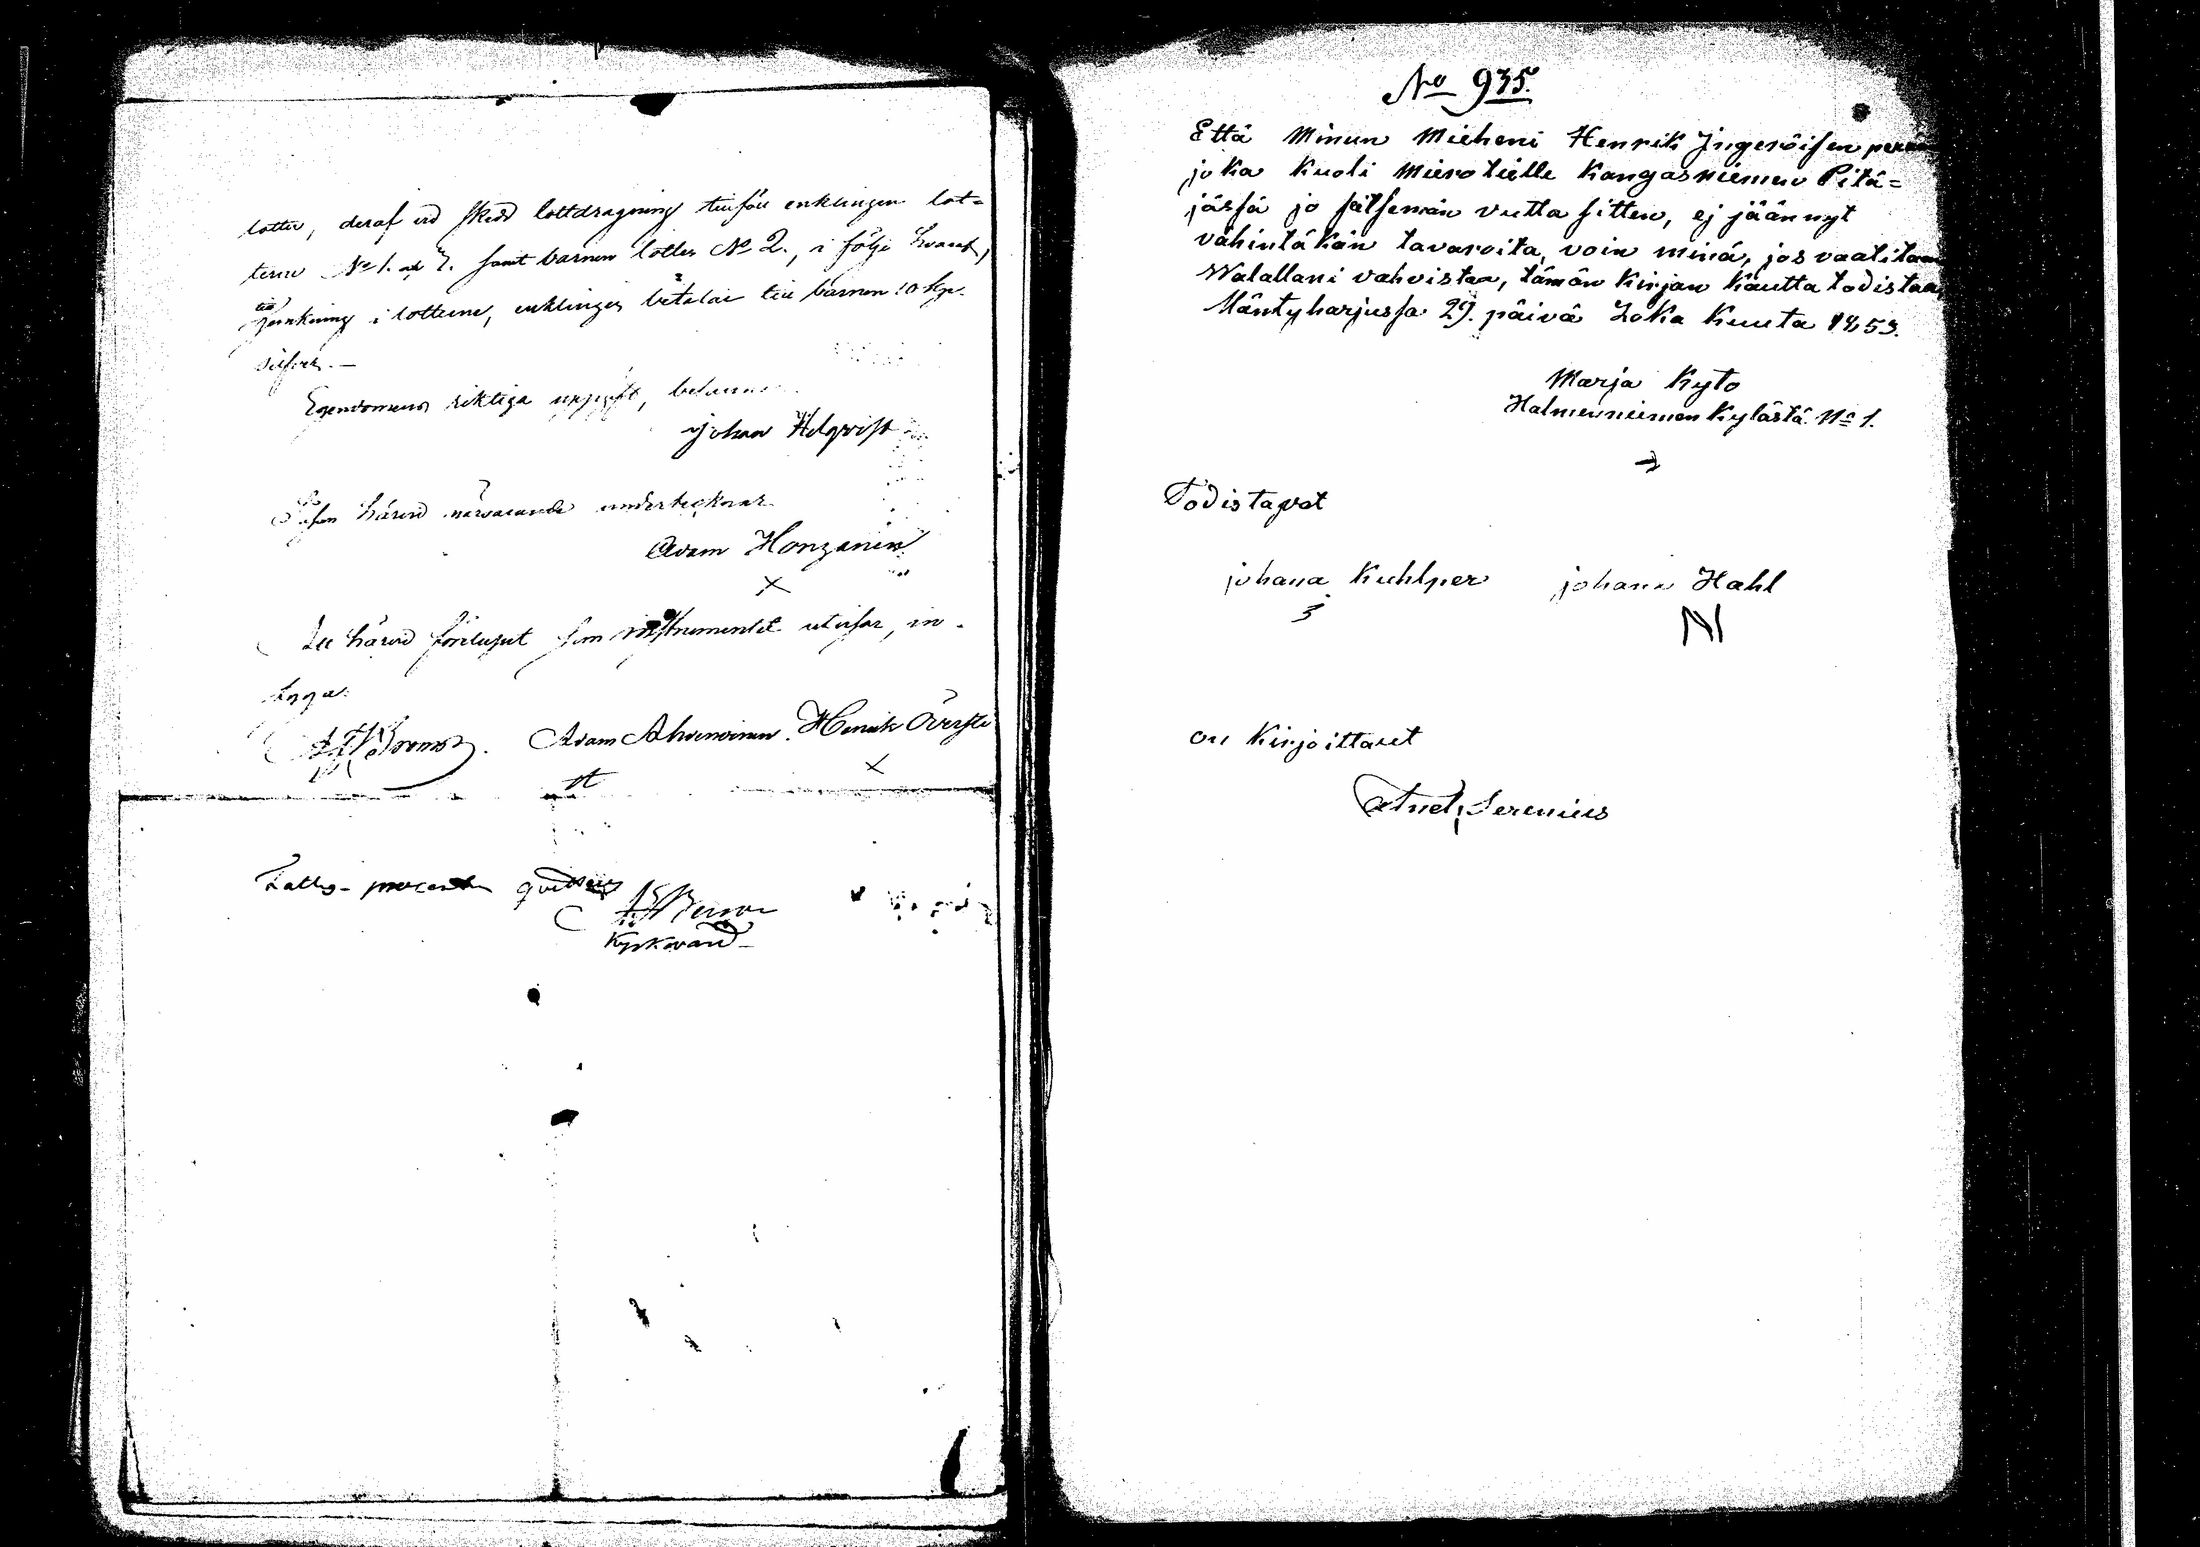 lotter, deraf vid skedd lottdragning tillföll enklingen lot=
terne No 1. och 7. samt barnen lotter No 2., i följe hvaraf,
till jemkning i lotterne, enklingen betalar till barnen 10 kp.
silfver. —
Egendomens riktiga uppgift, betuna
Johan Helqvist
Såsom härvid närvarande undertecknar
Adam Honganen
X
Så härvid förelupit som instrumentet utvisar, in-
tyga:
Adam Ahvenainen. Henrik Öfversti
X
Fattig-procenten qvitteras
Kyrkovärd
No 935.
Että Minun Mieheni Henrik Ingeröisen perän
joka Kuoli Mieroteille Kangasniemen Pitä=
jässä jo seitsemän vutta sitten, ej jäännyt
vähintäkän tavaroita, voin minä, jos vaalitaan
Walallani vahvistaa, tämän Kirjan kautta todistaa,
Mäntyharjussa 29. päivä Loka Kuuta 1853.
Marja Kyto
Halmenniemen Kylästä No 1.
Todistavat
johana Kuhlper johann Hahl
N
on Kirjoittanut
Serenius